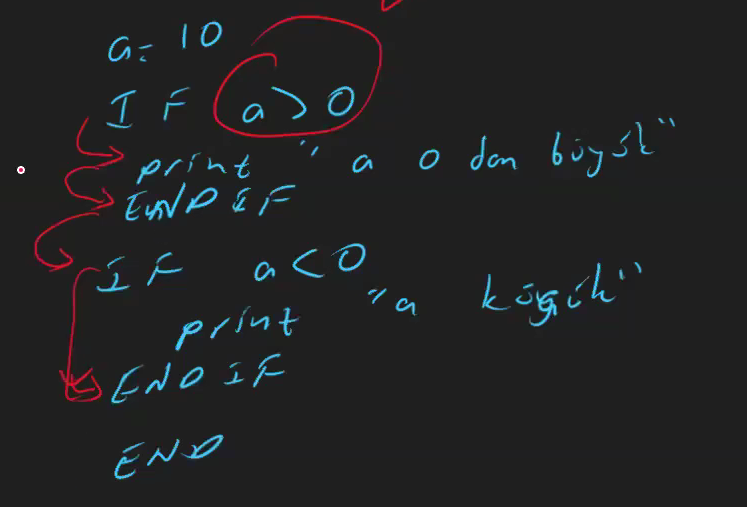 a = 10
IF a > 0
print "a 0 dan büyük"
END IF
IF a < 0
print "a küçük"
END IF
END